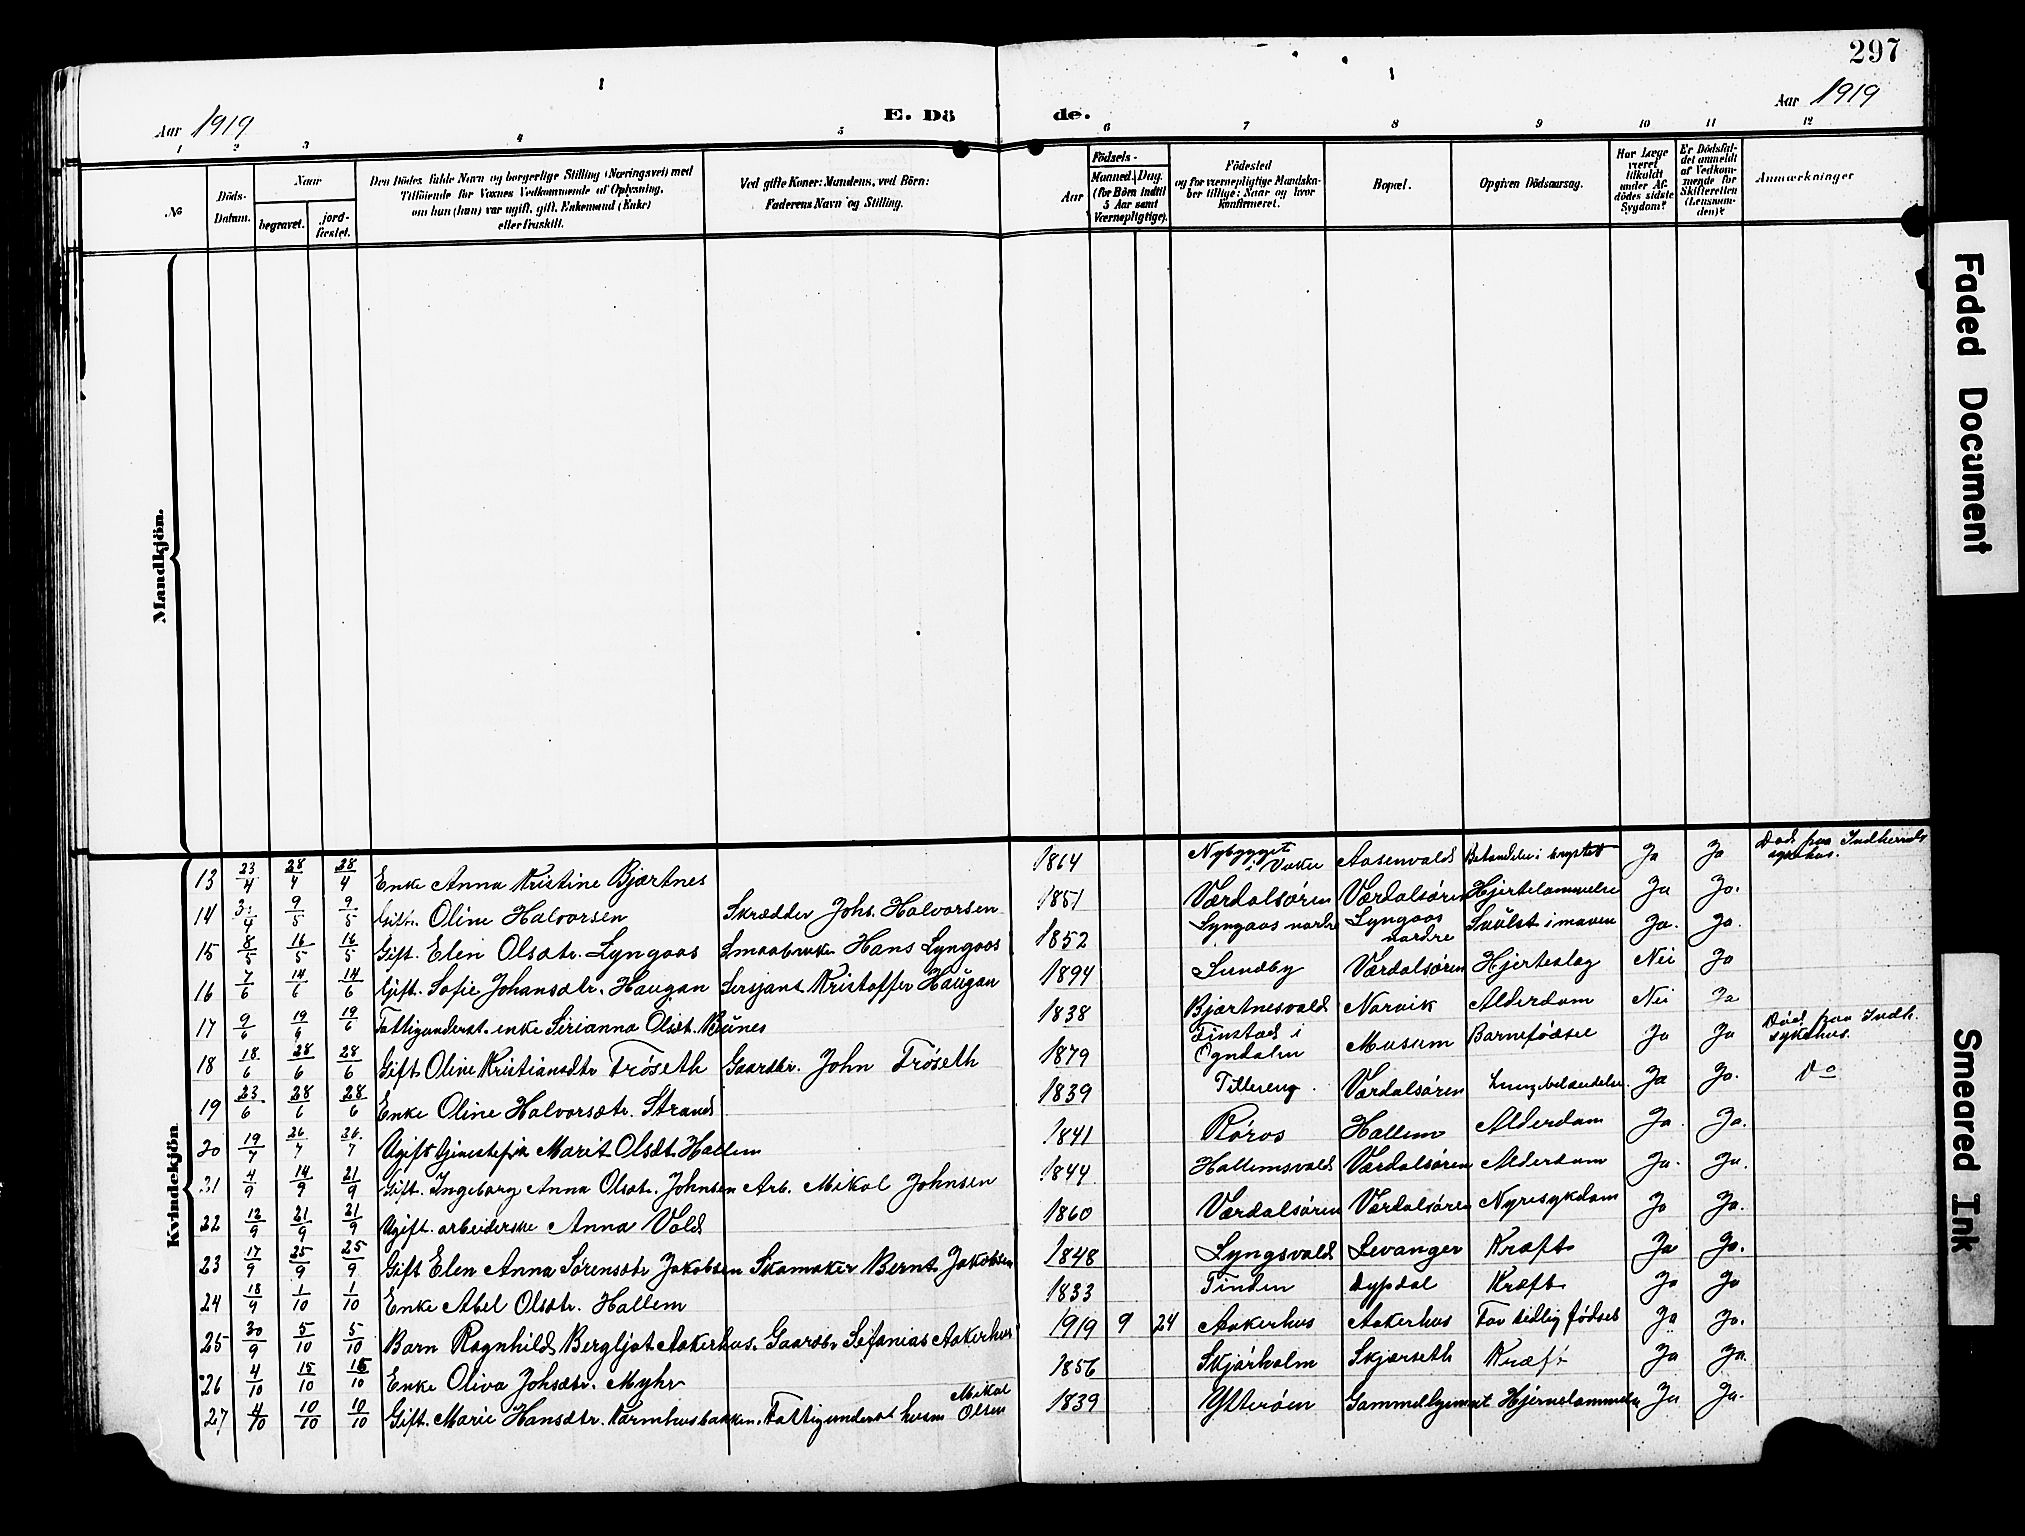 297
Aar 1919 E. Dö de. Aar 1919
1 2 3 4 5 6 7 8 9 10 11 12
No
Döds-Datum.
Naar
begravet.
jord-fæstet.
Den Dödes fulde Navn og borgerlige Stilling (Næringsvei) med
Tilföiende for Voxnes Vedkommende af Oplysning,
om hun (han) var ugift, gift, Enkemand (Enke)
eller fraskilt.
Ved gifte Koner: Mandens, ved Börn:
Faderens Navn og Stilling.
Födsels-
Aar
Maaned. Dag.
(for Börn indtil
5 Aar samt
Værnepligtige).
Födested
og for værnepligtige Mandska-
ber tillige: Naar og hvor
konfirmeret.
Bopæl.
Opgiven Dödsaarsag.
Har Læge
været
tilkaldt
under Af-
dödes sidste
Sygdom?
Er Dödsfal-
det anmeldt
af Vedkom-
mende for
Skifteretten
(Lensman-
den)?
Anmærkninger
Mandkjön.
Kvindekjön
13 23/4 28/4 28/4 Enke Anna Kristine Bjartnes 1864 Nybygget i Vuku Aasenvald Betændelse i brystet Ja Ja Död paa Indherreds sykehus.
14 9/5 9/5 Gift. Oline Halvorsen Skrædder Johs. Halvorsen 1851 Værdalsören Værdalsören Hjertelammelse Ja Ja.
15 8/5 16/5 16/5 Gift. Elen Olsdtr. Lyngaas Smaabruker Hans Lyngaas 1852 Lyngaas nordre Lyngaas nordre Svulst i maven Ja. Ja.
16 7/6 14/6 14/6 Gift. Sofie Johansdtr. Haugan Sersjant Kristoffer Haugan 1894 Sundby Værdalsören Hjerteslag Nei Ja
17 9/6 19/6 19/6 Fattigunderst. enke Sirianna Olsdt. Bunes 1838 Bjartnesvald Norvik Alderdom Nei Ja
18 18/6 28/6 28/6 Gift Oline Kristiansdtr Tröseth Gaardbr. John Tröseth 1879 Tinstad i Ogndalen Musum Barnefödsel Ja Ja Död paa Indh. sykehus.
19 23/6 28/6 28/6 Enke Oline Halvorsdtr. Strand 1839 Tillereng. Værdalsören Lungebetændelse Ja Ja. Do
20 19/7 26/7 26/7 Ugift tjenestepik Marit Olsdt Hallem 1841 Röros Hallem Alderdom Ja Ja.
21 4/9 14/9 21/9 Gift. Ingeborg Anna Olsdt. Johnsen Arb. Mikal Johnsen 1844 Hallemsvald Værdalsören Alderdom Ja. Ja.
22 12/9 21/9 21/9 Ugift. arbeiderske Anna Vold 1860 Værdalsören Værdalsören Nyresykdom Ja Ja.
23 17/9 25/9 25/9 Gift Elen Anna Sörensdtr Jakobsen Skomaker Bernt Jakobsen 1848 Lyngsvald Levanger Kræft Ja Ja.
24 18/9 1/10 1/10 Enke Abel Olsdtr. Hallem 1833 Tinden Dypdal Kræft Ja Ja
25 30/9 5/10 5/10 Barn Ragnhild Bergljot Aakerhus. Gaardbr Sefanias Aakerhus 1919 9 24 Aakerhus Aakerhus For tidlig födsel Ja Ja.
26 4/10 15/10 15/10 Enke Oliva Johsdtr. Myhr 1856 Skjörholm Skjærseth Kræft Ja Ja.
27 4/10 10/10 10/10 Gift. Marie Hansdtr. Kornhusbakken. Fattigunderst husm Mikal Olsen 1839 Ytteröen Gammelhjemmet Hjernelammelse Ja Ja.
Faded Document
Smeared Ink